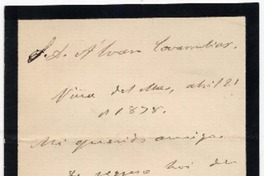 S. D. Alvaro Covarrubias.
Viña del Mar, abril 21
de 1878.
Mi querido amigo:
De regreso hoi de